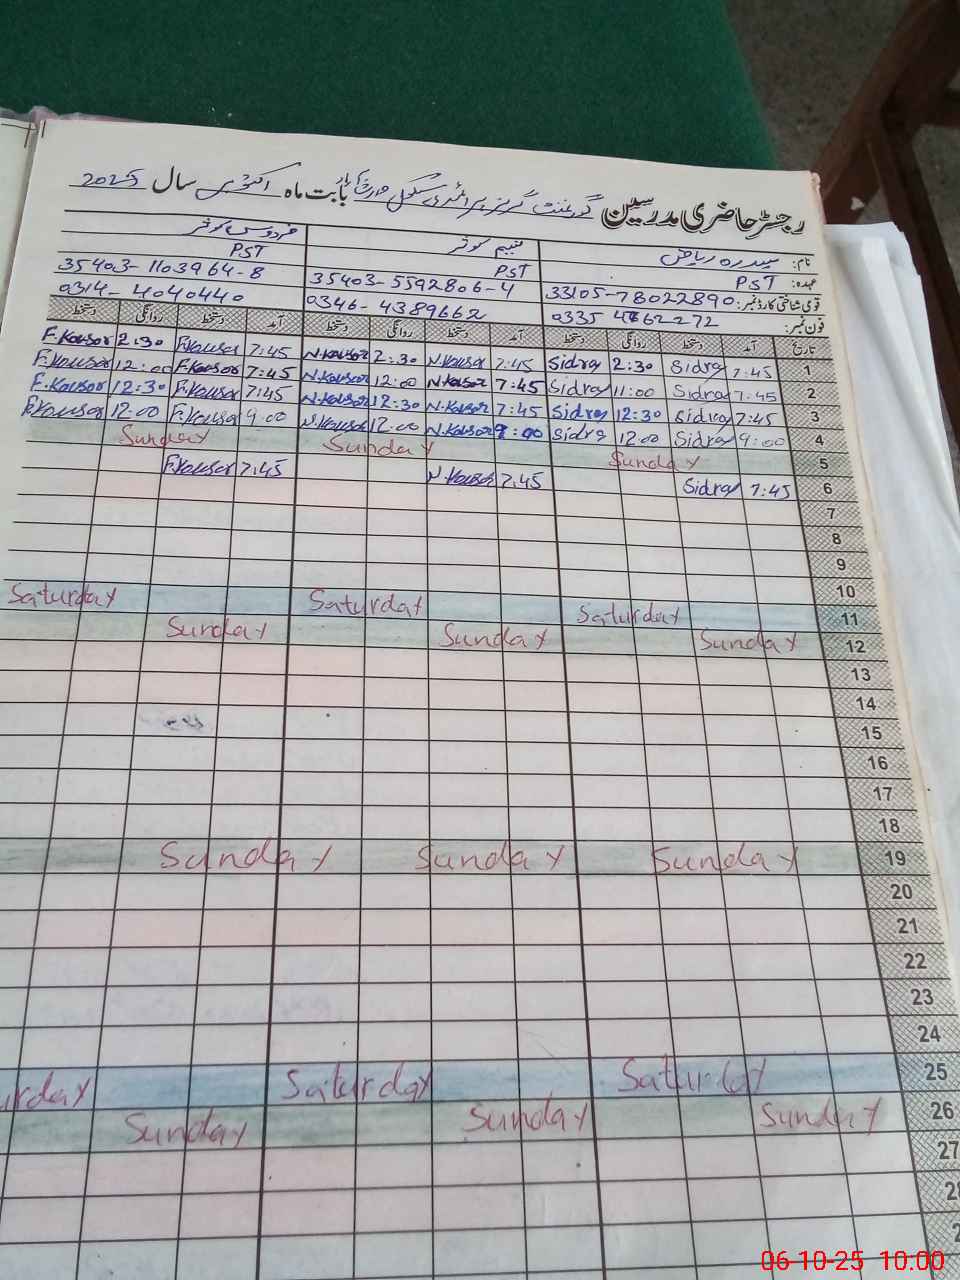 رجسٹر حاضری مدرسین گورنمنٹ گرلز پرائمری سکول بابت ماہ اکتوبر سال 2025
نام: سیدرہ ریاض نسیم کوثر فردوس کوثر
عہدہ: PST PST PST
قومی شناختی کارڈ نمبر: 33105-78022890 35403-5592806-4 35403-1103964-8
فون نمبر: 0335 4762272 0346-4389662 0314-4040440
تاریخ آمد دستخط روانگی دستخط آمد دستخط روانگی دستخط آمد دستخط روانگی دستخط
1 7:45 Sidra 2:30 Sidra 7:45 N.Kousor 2:30 N.Kousor 7:45 F.Kousor 2:30 F.Kousor
2 7:45 Sidra 11:00 Sidra 7:45 N.Kousor 12:00 N.Kousor 7:45 F.Kousor 12:00 F.Kousor
3 7:45 Sidra 12:30 Sidra 7:45 N.Kousor 12:30 N.Kousor 7:45 F.Kousor 12:30 F.Kousor
4 9:00 Sidra 12:00 Sidra 9:00 N.Kousor 12:00 N.Kousor 9:00 F.Kousor 12:00 F.Kousor
5 Sunday Sunday Sunday
6 7:45 Sidra 7:45 N.Kousor 7:45 F.Kousor
7
8
9
10
11 Saturday Saturday Saturday
12 Sunday Sunday Sunday
13
14
15
16
17
18
19 Sunday Sunday Sunday
20
21
22
23
24
25 Saturday Saturday urday
26 Sunday Sunday Sunday
27
06-10-25 10:00